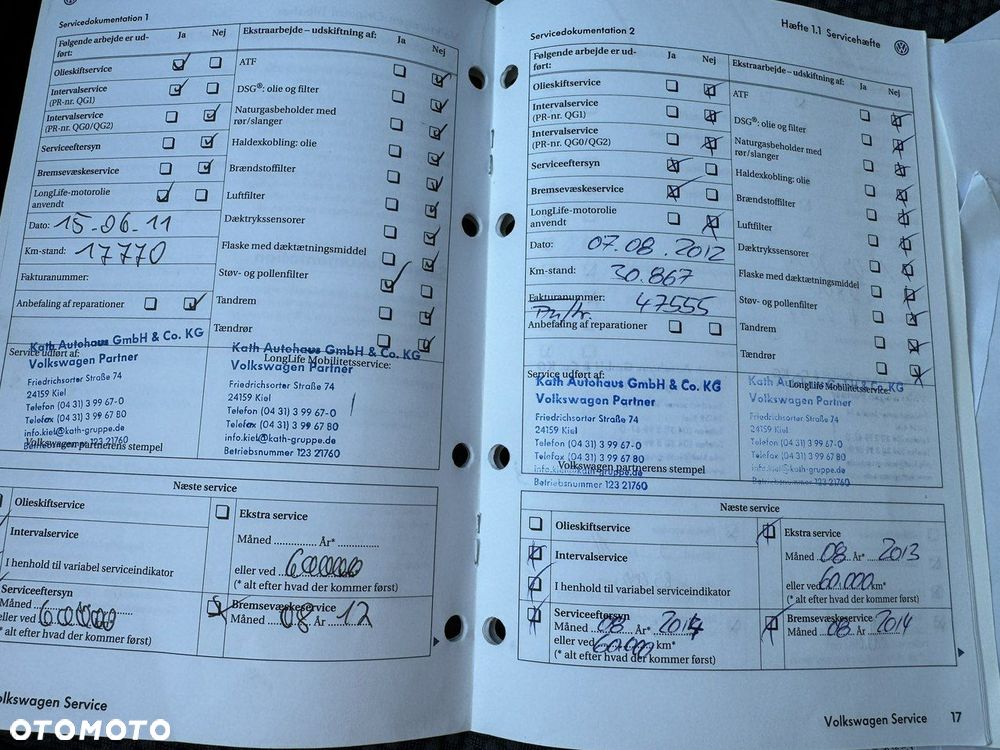 Servicedokumentation 1
Følgende arbejde er ud-
ført:
Ja
Nej
Ekstraarbejde – udskiftning af:
Ja
Nej
Olieskiftservice
Intervalservice
(PR-nr. QG1)
Intervalservice
(PR-nr. QG0/QG2)
Serviceeftersyn
Bremsevæskeservice
LongLife-motorolie
anvendt
Dato: 15-06-11
Km-stand: 17770
Fakturanummer:
Anbefaling af reparationer
ATF
DSG®: olie og filter
Naturgasbeholder med
rør/slanger
Haldexkobling: olie
Brændstoffilter
Luftfilter
Dæktrykssensorer
Flaske med dæktætningsmiddel
Støv- og pollenfilter
Tandrem
Tændrør
Service udført af:
Kath Autohaus GmbH & Co. KG
Volkswagen Partner
Friedrichsorter Straße 74
24159 Kiel
Telefon (04 31) 3 99 67-0
Telefax (04 31) 3 99 67 80
info.kiel@kath-gruppe.de
Betriebsnummer 123 21760
Volkswagen partnerens stempel
LongLife Mobilitetsservice:
Kath Autohaus GmbH & Co. KG
Volkswagen Partner
Friedrichsorter Straße 74
24159 Kiel
Telefon (04 31) 3 99 67-0
Telefax (04 31) 3 99 67 80
info.kiel@kath-gruppe.de
Betriebsnummer 123 21760
Næste service
Olieskiftservice
Intervalservice
I henhold til variabel serviceindikator
Serviceeftersyn
Måned
eller ved
(* alt efter hvad der kommer først)
Ekstra service
Måned ............. År* ...............
eller ved
(* alt efter hvad der kommer først)
Bremsevæskeservice
Måned 08 År 12
Volkswagen Service
OTOMOTO
Servicedokumentation 2
Hæfte 1.1 Servicehæfte
Følgende arbejde er ud-
ført:
Ja
Nej
Ekstraarbejde – udskiftning af:
Ja
Nej
Olieskiftservice
Intervalservice
(PR-nr. QG1)
Intervalservice
(PR-nr. QG0/QG2)
Serviceeftersyn
Bremsevæskeservice
LongLife-motorolie
anvendt
Dato: 07.08.2012
Km-stand: 30.867
Fakturanummer: 47555
Anbefaling af reparationer
ATF
DSG®: olie og filter
Naturgasbeholder med
rør/slanger
Haldexkobling: olie
Brændstoffilter
Luftfilter
Dæktrykssensorer
Flaske med dæktætningsmiddel
Støv- og pollenfilter
Tandrem
Tændrør
Service udført af:
Kath Autohaus GmbH & Co. KG
Volkswagen Partner
Friedrichsorter Straße 74
24159 Kiel
Telefon (04 31) 3 99 67-0
Telefax (04 31) 3 99 67 80
info.kiel@kath-gruppe.de
Betriebsnummer 123 21760
Volkswagen partnerens stempel
LongLife Mobilitetsservice:
Kath Autohaus GmbH & Co. KG
Volkswagen Partner
Friedrichsorter Straße 74
24159 Kiel
Telefon (04 31) 3 99 67-0
Telefax (04 31) 3 99 67 80
info.kiel@kath-gruppe.de
Betriebsnummer 123 21760
Næste service
Olieskiftservice
Intervalservice
I henhold til variabel serviceindikator
Serviceeftersyn
Måned 08 År* 2014
eller ved 60.000 km*
(* alt efter hvad der kommer først)
Ekstra service
Måned 08 År* 2013
eller ved 60.000 km*
(* alt efter hvad der kommer først)
Bremsevæskeservice
Måned 08 År 2014
Volkswagen Service 17